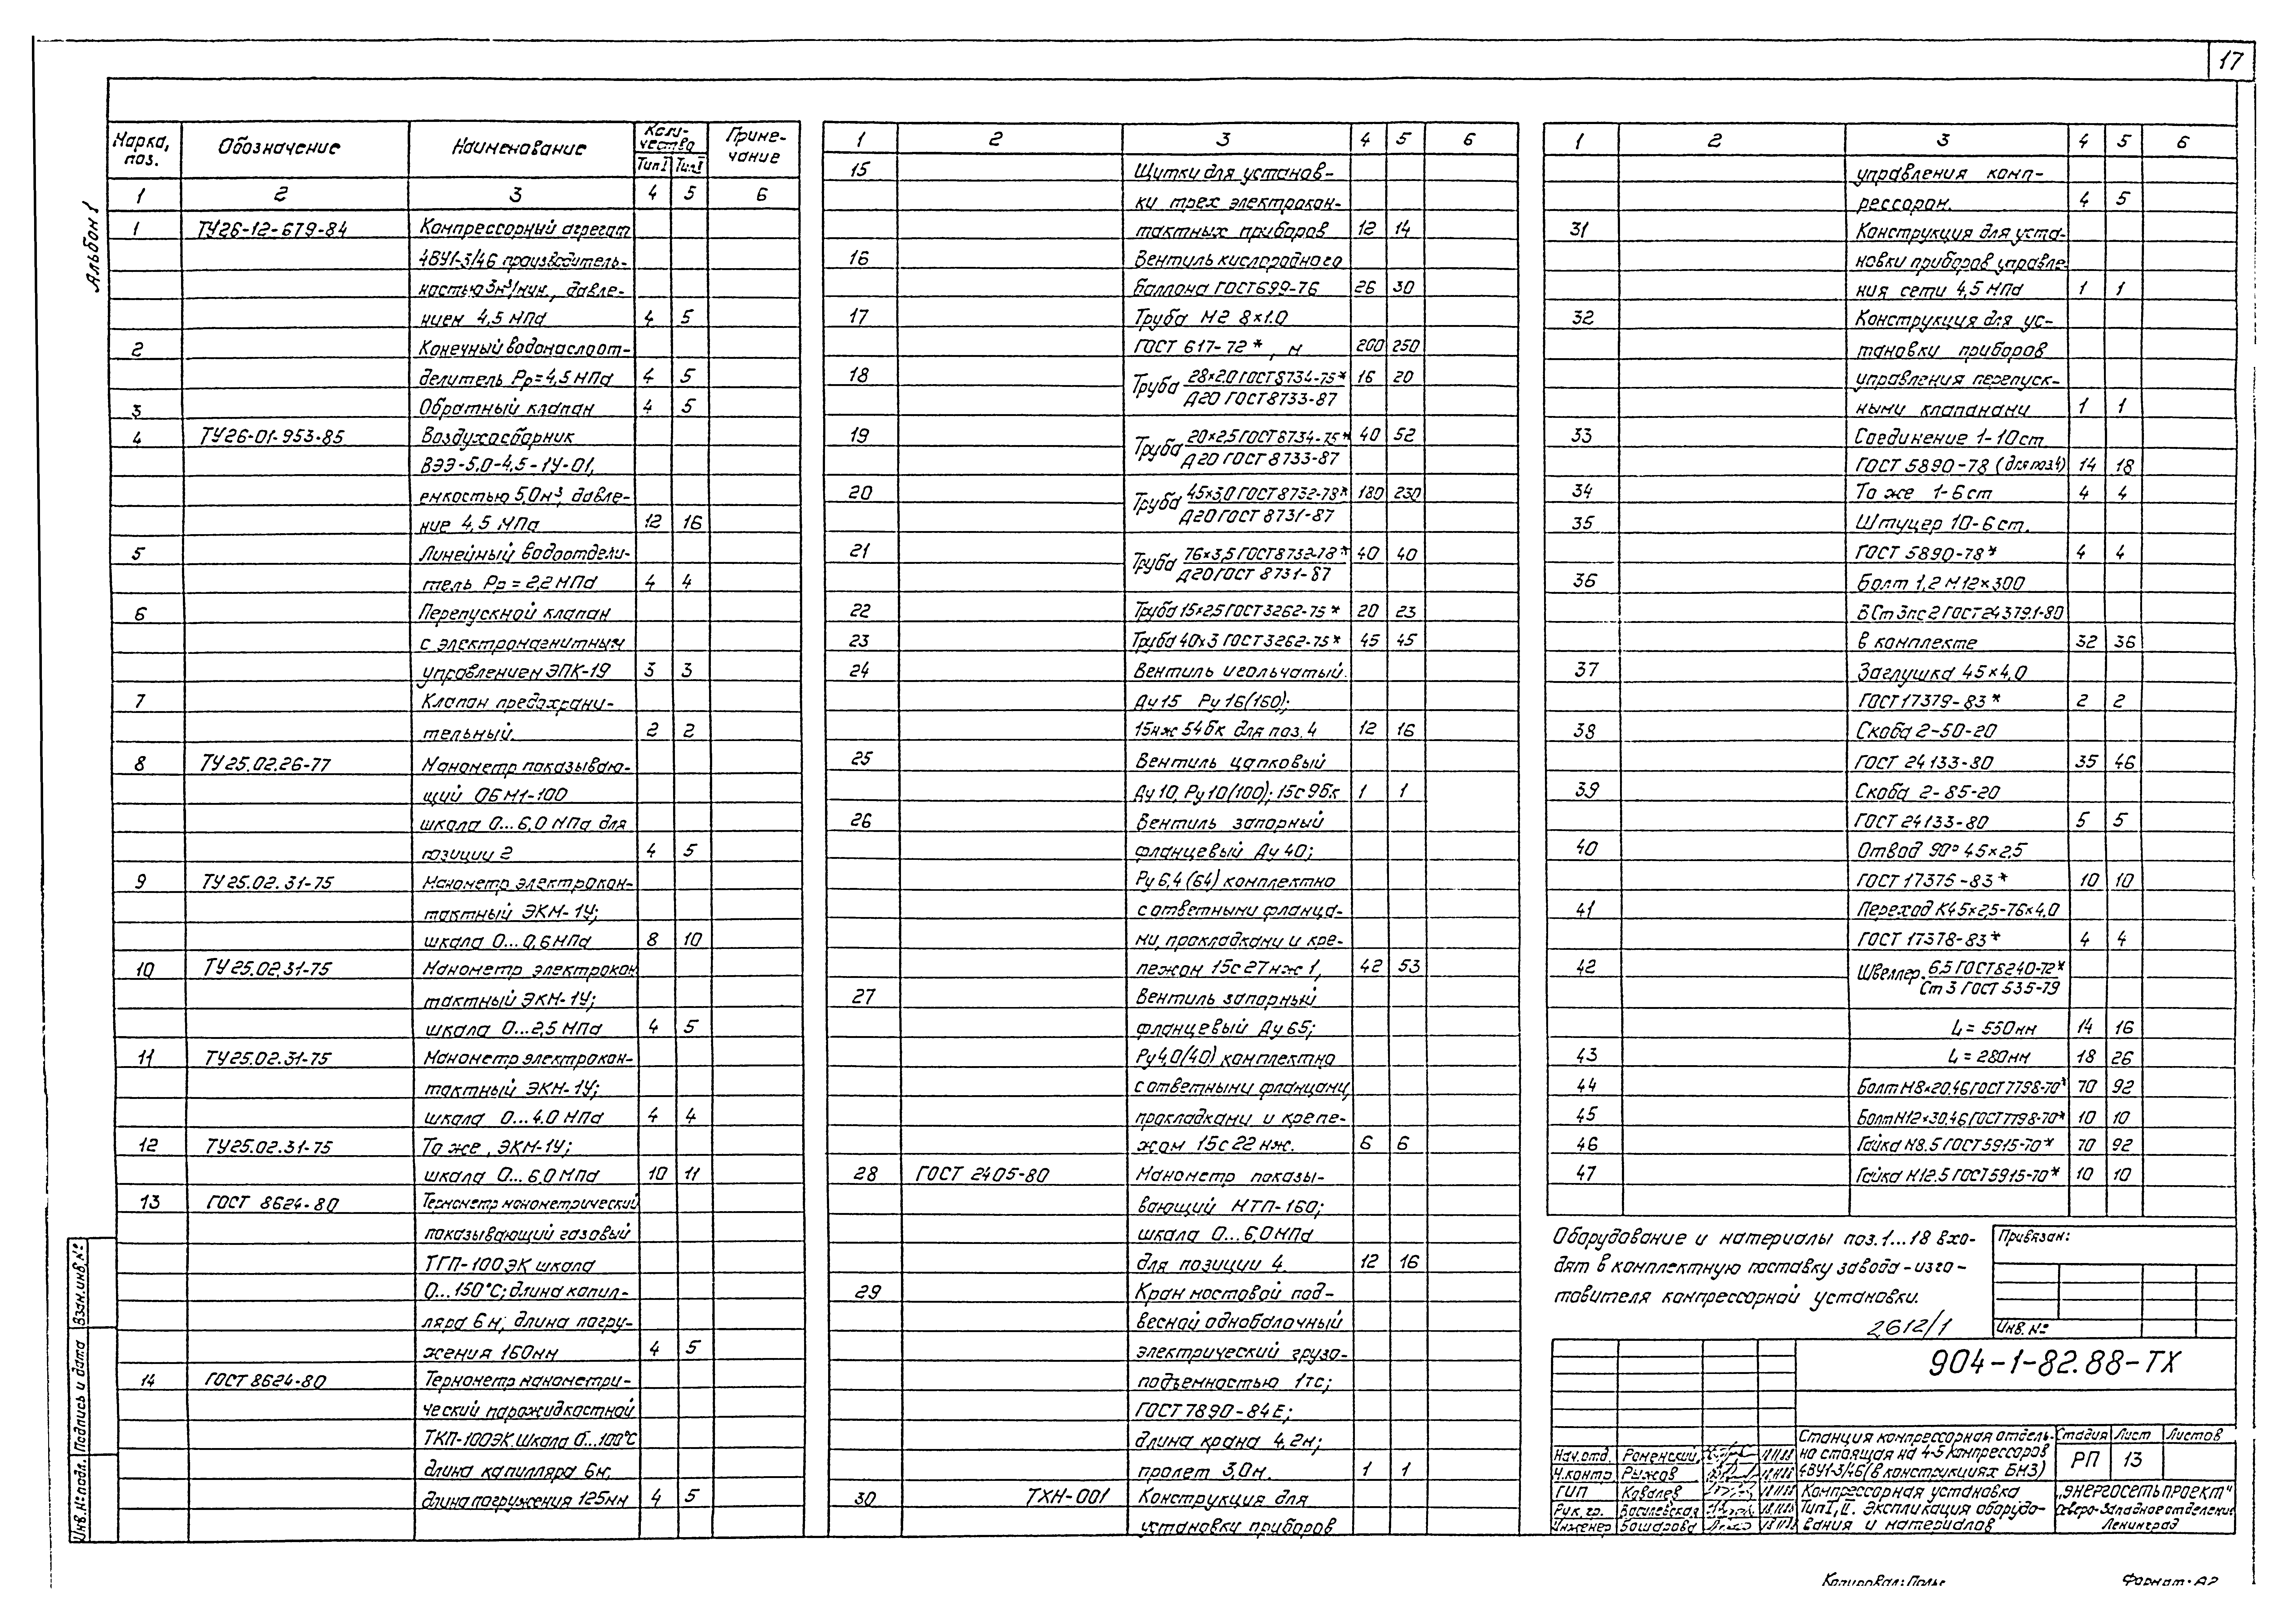 17
Альбом 1
Марка, поз. Обозначение Наименование Количество Тип I Тип II Примечание
1 2 3 4 5 6
1 ТУ26-12-679-84 Компрессорный агрегат
4ВУ1-5/46 производитель-
ностью 3м³/мин., давле-
нием 4,5 МПа 4 5
2 Конечный водомаслоот-
делитель Рр=4,5 МПа 4 5
3 Обратный клапан 4 5
4 ТУ26-01-953-85 Воздухосборник
ВЭЭ-5,0-4,5-1У-01,
емкостью 5,0м³, давле-
ние 4,5 МПа 12 16
5 Линейный водоотдели-
тель Рр = 2,2 МПа 4 4
6 Перепускной клапан
с электромагнитным
управлением ЭПК-19 3 3
7 Клапан предохрани-
тельный. 2 2
8 ТУ 25.02.26-77 Манометр показываю-
щий ОБМ1-100
шкала 0...6,0 МПа для
позиции 2 4 5
9 ТУ 25.02.31-75 Манометр электрокон-
тактный ЭКМ-1У;
шкала 0...0,6 МПа 8 10
10 ТУ 25.02.31-75 Манометр электрокон
тактный ЭКМ-1У;
шкала 0...2,5 МПа 4 5
11 ТУ25.02.31-75 Манометр электрокон-
тактный ЭКМ-1У;
шкала 0...4.0 МПа 4 4
12 ТУ25.02.31-75 То же, ЭКМ-1У;
шкала 0...6,0 МПа 10 11
13 ГОСТ 8624-80 Термометр манометрический
показывающий газовый
ТГП-100ЭК шкала
0...150°С; длина капил-
ляра 6м; длина погру-
жения 160мм 4 5
14 ГОСТ 8624-80 Термометр манометри-
ческий парожидкостной
ТКП-100ЭК. Шкала 0...100°С
длина капилляра 6м;
длина погружения 125мм 4 5
1 2 3 4 5 6
15 Щитки для установ-
ки трех электрокон-
тактных приборов 12 14
16 Вентиль кислородного
баллона ГОСТ 699-76 26 30
17 Труба М2 8×1.0
ГОСТ 617-72*, м 200 250
18 Труба 28×2.0 ГОСТ 8734-75* 16 20
Д20 ГОСТ 8733-87
19 Труба 20×2,5 ГОСТ 8734-75* 40 52
Д20 ГОСТ 8733-87
20 Труба 45×3,0 ГОСТ 8732-78* 180 230
Д20 ГОСТ 8731-87
21 Труба 76×3,5 ГОСТ 8732-78* 40 40
Д20 ГОСТ 8731-87
22 Труба 15×2,5 ГОСТ 3262-75* 20 23
23 Труба 40×3 ГОСТ 3262-75* 45 45
24 Вентиль игольчатый.
Ду 15 Ру 16(160);
15нж 54бк для поз. 4 12 16
25 Вентиль цапковый
Ду 10, Ру 10(100); 15с 9бк 1 1
26 Вентиль запорный
фланцевый Ду 40;
Ру 6,4 (64) комплектно
с ответными фланца-
ми, прокладками и кре-
пежом 15с 27нж 1, 42 53
27 Вентиль запорный
фланцевый Ду 65;
Ру4,0(40) комплектно
с ответными фланцами,
прокладками и крепе-
жом 15с 22 нж. 6 6
28 ГОСТ 2405-80 Манометр показы-
вающий МТП-160;
шкала 0...6,0 МПа
для позиции 4. 12 16
29 Кран мостовой под-
весной однобалочный
электрический грузо-
подъемностью 1тс;
ГОСТ 7890-84 Е;
длина крана 4,2м;
пролет 3,0м. 1 1
30 ТХН-001 Конструкция для
установки приборов
1 2 3 4 5 6
управления комп-
рессором. 4 5
31 Конструкция для уста-
новки приборов управле-
ния сети 4,5 МПа 1 1
32 Конструкция для ус-
тановки приборов
управления перепуск-
ными клапанами 1 1
33 Соединение 1-10ст
ГОСТ 5890-78 (для поз.4) 14 18
34 То же 1-6ст 4 4
35 Штуцер 10-6ст.
ГОСТ 5890-78* 4 4
36 Болт 1,2 М12×300
ВСт3пс2 ГОСТ 24379.1-80
в комплекте 32 36
37 Заглушка 45×4,0
ГОСТ 17379-83* 2 2
38 Скоба 2-50-20
ГОСТ 24133-80 35 46
39 Скоба 2-85-20
ГОСТ 24133-80 5 5
40 Отвод 90° 45×2,5
ГОСТ 17375-83* 10 10
41 Переход К45×2,5-76×4,0
ГОСТ 17378-83* 4 4
42 Швеллер 6,5 ГОСТ 8240-72*
Ст3 ГОСТ 535-79
L = 550мм 14 16
43 L = 280мм 18 26
44 Болт М8×20.46 ГОСТ 7798-70* 70 92
45 Болт М12×30.46 ГОСТ 7798-70* 10 10
46 Гайка М8.5 ГОСТ 5915-70* 70 92
47 Гайка М12.5 ГОСТ 5915-70* 10 10
Оборудование и материалы поз. 1...18 вхо-
дят в комплектную поставку завода-изго-
товителя компрессорной установки.
2612/1
Привязан:
Инв. №
904-1-82.88-ТХ
Станция компрессорная отдель-
но стоящая на 4-5 компрессоров
4ВУ1-5/46 (в конструкциях БМЗ)
Стадия Лист Листов
РП 13
Нач.отд. Роменский
Н.контр Рыжов
ГИП Ковалев
Рук. гр. Василевская
Инженер Башарова
Компрессорная установка
Тип I, II. Экспликация оборудо-
вания и материалов
„Энергосетьпроект“
Северо-Западное отделение
Ленинград
Инв. № подл. Подпись и дата Взам. инв. №
Копировал: Полье
Формат: А2